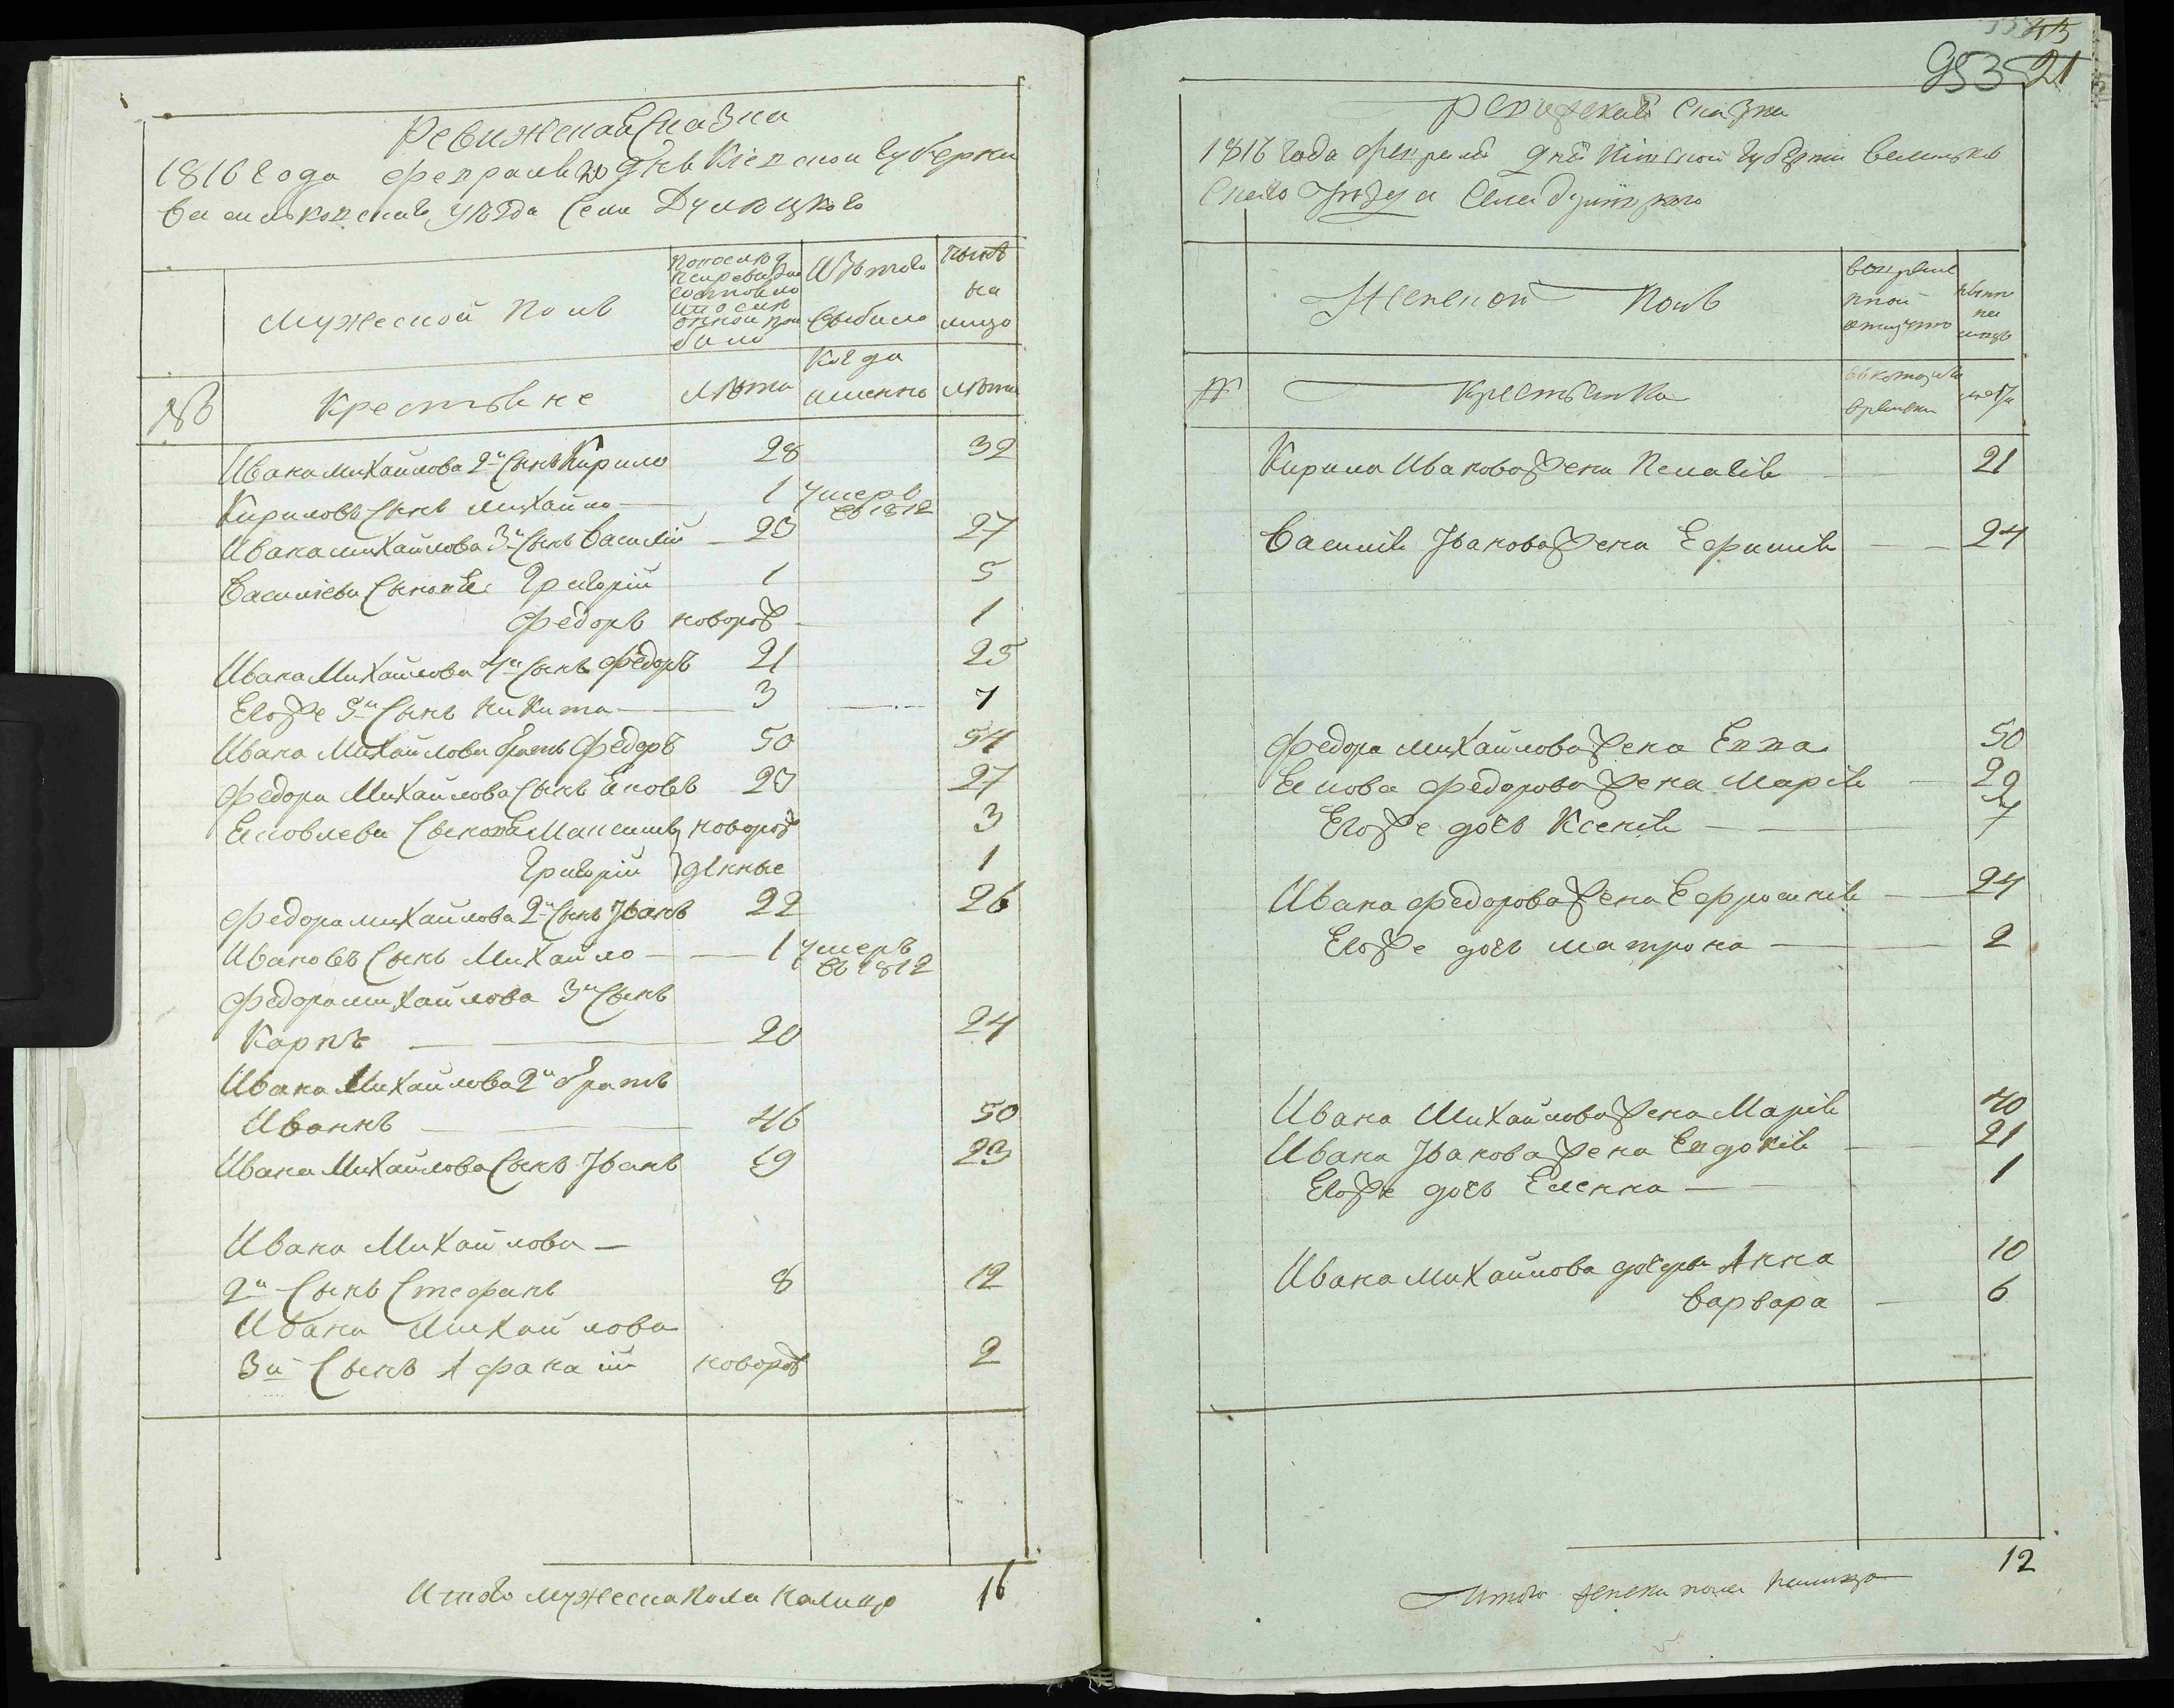 Ревижская Сказка
1816 Года февраля 20 дня Кіевской Губерни
Васильковскаго уѣзда Села Дулицкого
Мужеской полъ
По последней ревизіи состояло и после оной прибыло
Изъ того Выбыло
Нынѣ на лицо
№
Крестьяне
Лѣта
Когда именно
Лѣта
Ивана михайлова 2й Сынъ Кирило 28 32
Кириловъ Сынъ михайло 1 умеръ въ 1812
Ивана михайлова 3й Сынъ Василій 23 27
Василіевы Сыновья Григорій 1 5
Федоръ новорож 1
Ивана Михайлова 4й Сынъ Федоръ 21 25
Егоже 5й Сынъ Никита 3 7
Ивана Михайлова братъ Федоръ 50 54
Федора Михайлова Сынъ Яковъ 23 27
Яковлевы Сыновья Максимъ новорож 3
Григорій денные 1
Федора михайлова 2й Сынъ Иванъ 22 26
Ивановъ Сынъ Михайло 1 умеръ въ 1812
Федора михайлова 3й Сынъ
Карпъ 20 24
Ивана Михайлова 2й братъ
Иванъ 46 50
Ивана Михайлова Сынъ Іванъ 19 23
Ивана Михайлова
2й Сынъ Стефанъ 8 12
Ивана Михайлова
3й Сынъ Афанасій новорож 2
Итого мужеска пола налицо 16
953
21
Ревижская Сказка
1816 Года февраля дня Кіевской Губерніи Васильков
скаго уѣзда Села Дулицкого
Женской Полъ
во временной отлучке
нынѣ на лицо
№
Крестьянка
съ котораго времени
лета
Кирила Иванова жена Пелагія 21
Василія Іванова жена Ефимія 24
Федора михайлова жена Евва 50
Якова Федорова жена Марія 29
Егоже дочь Ксенія 7
Ивана Федорова жена Ефросинія 24
Егоже дочь матрона 2
Ивана Михайлова жена Марія 40
Ивана Іванова жена Евдокія 21
Егоже дочь Еленна 1
Ивана Михайлова дочери Анна 10
Варвара 6
Итого женска пола налицо 12